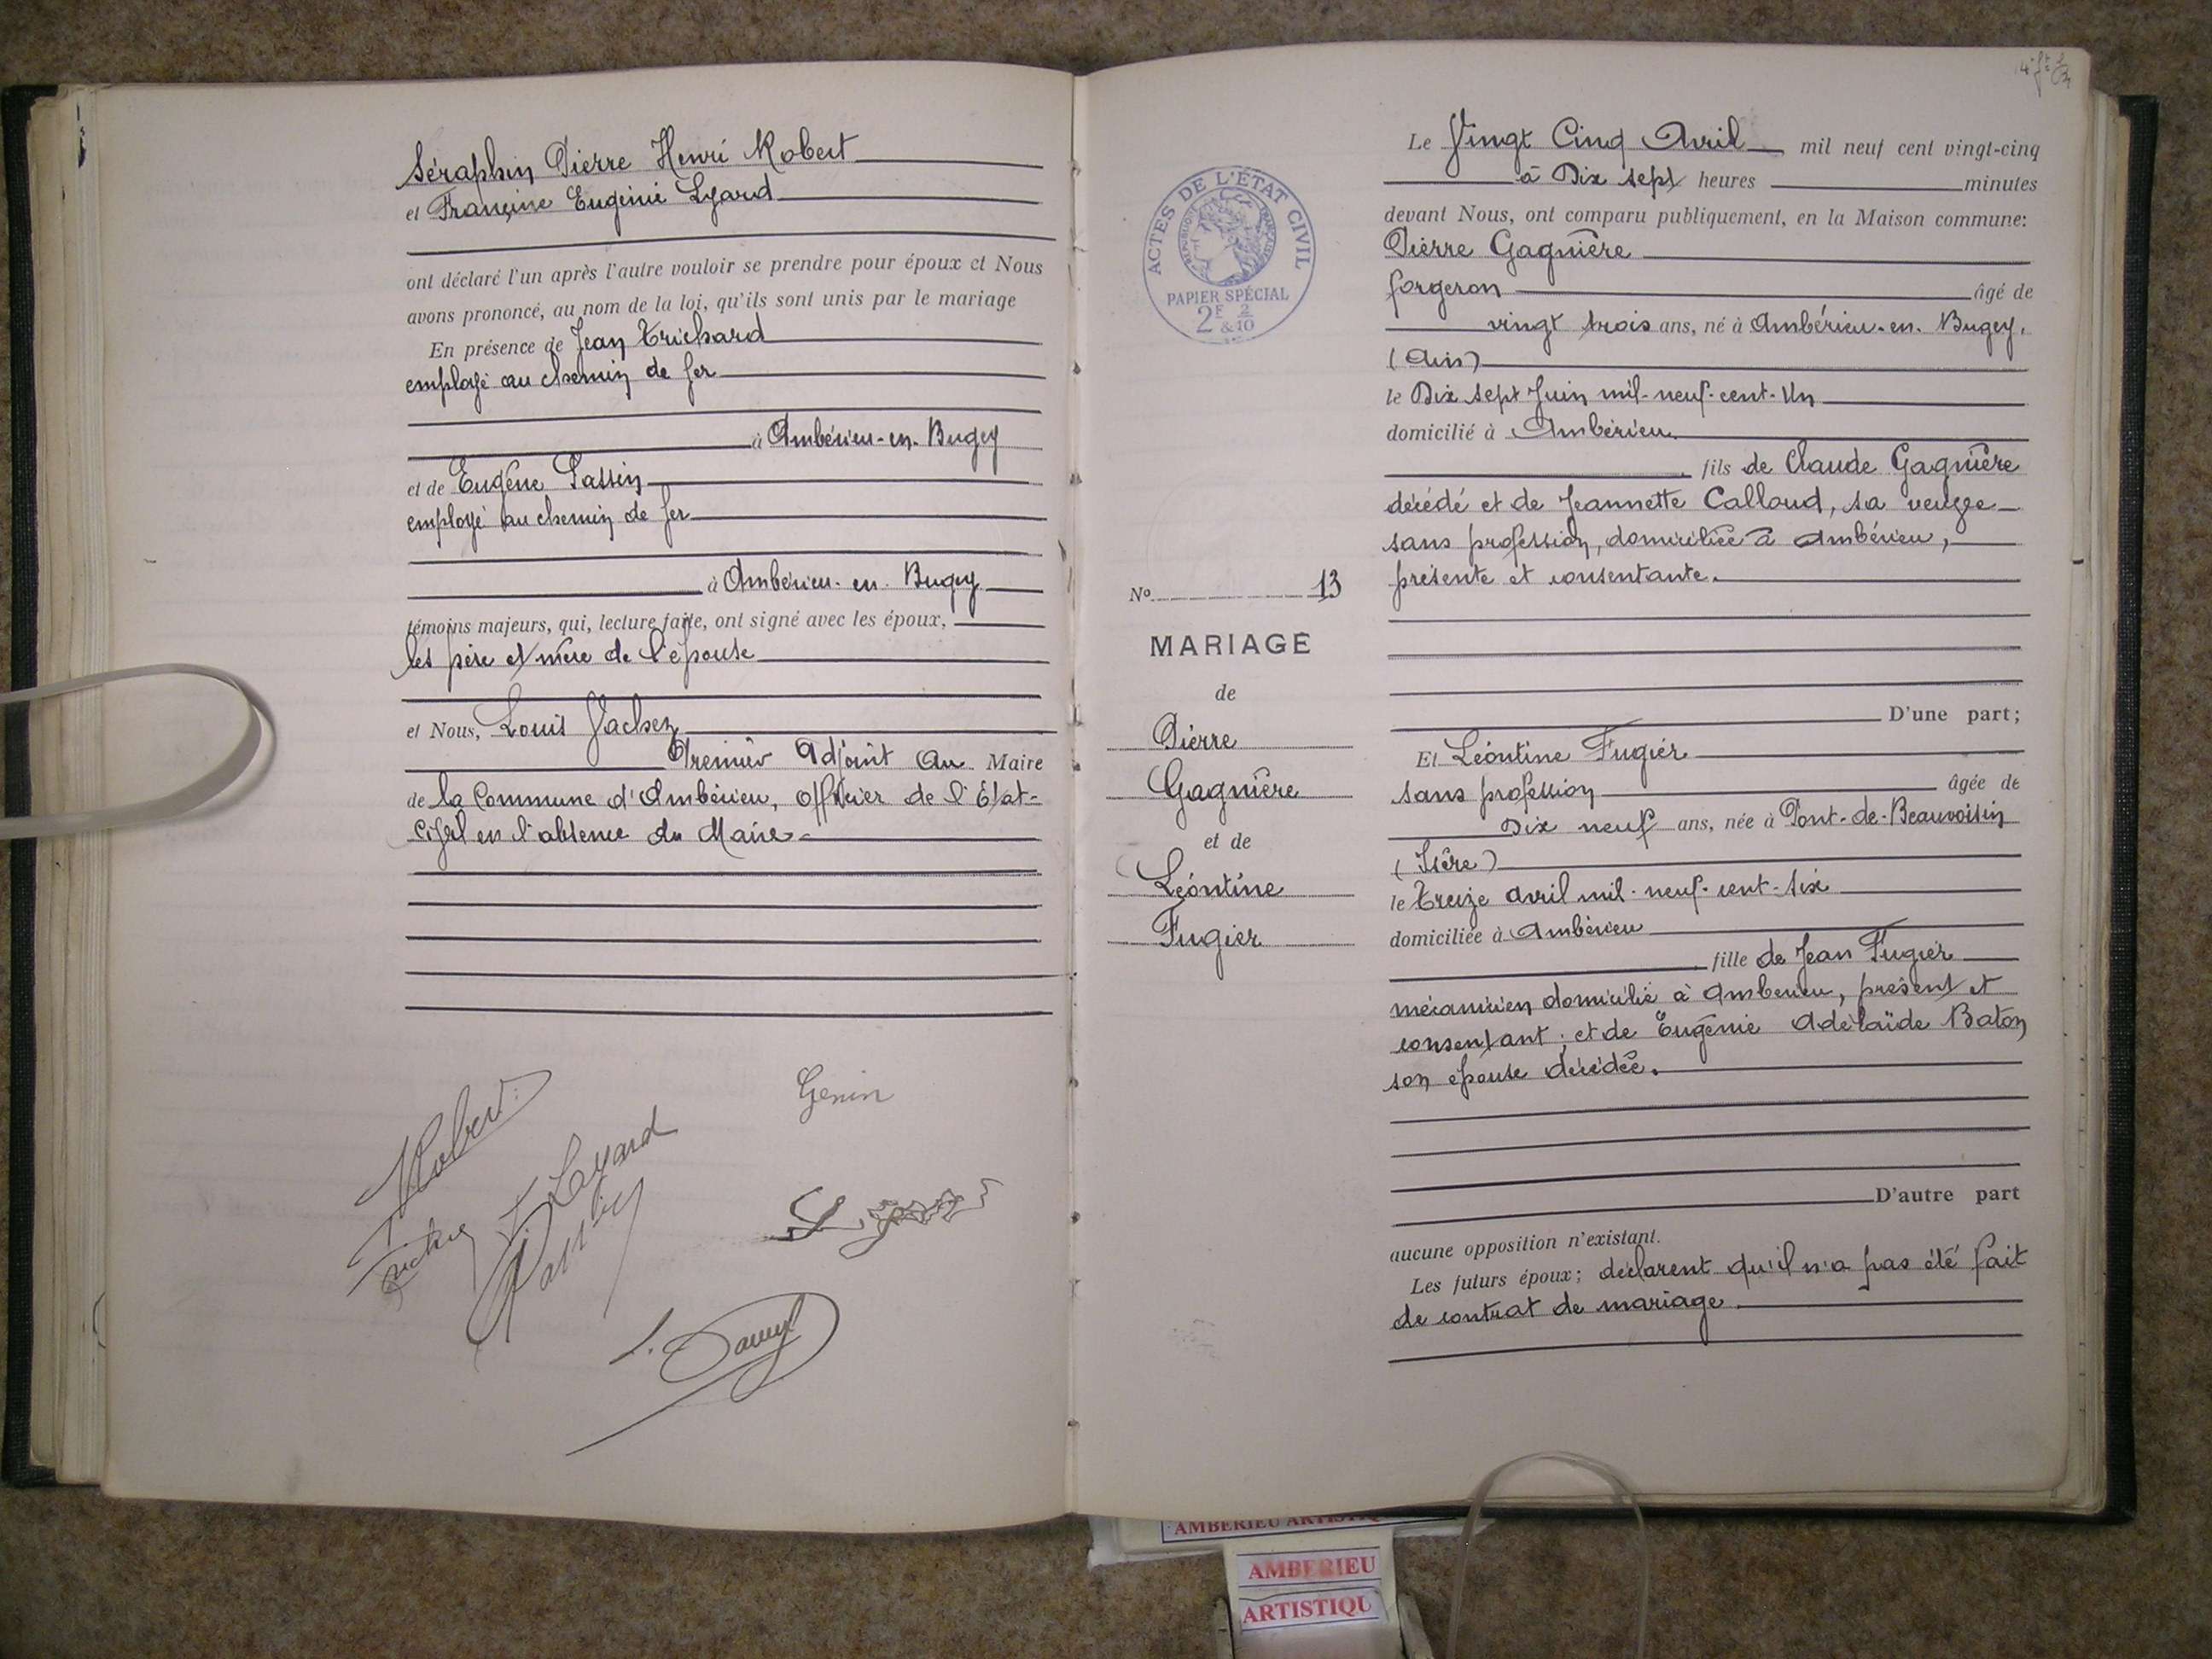 Séraphin Pierre Henri Robert
et Françine Eugénie Lyard
ont déclaré l'un après l'autre vouloir se prendre pour époux et Nous
avons prononcé, au nom de la loi, qu'ils sont unis par le mariage
En présence de Jean Trichard
employé au chemin de fer
à Ambérieu-en-Bugey
et de Eugène Passin
employé au chemin de fer
à Ambérieu-en-Bugey
témoins majeurs, qui, lecture faite, ont signé avec les époux,
les père et mère de l'épouse
et Nous, Louis Vachez
Premier Adjoint Au Maire
de la Commune d'Ambérieu, officier de l'État-
Civil en l'absence du Maire
Genin
Robert
F. Lyard
Le Vingt Cinq Avril mil neuf cent vingt-cinq
à Dix sept heures minutes
devant Nous, ont comparu publiquement, en la Maison commune:
Pierre Gagnière
forgeron âgé de
vingt trois ans, né à Ambérieu-en-Bugey,
(Ain)
le Dix sept Juin mil-neuf-cent-Un
domicilié à Ambérieu
fils de Claude Gagnière
décédé et de Jeannette Calloud, sa veuve
sans profession, domiciliée à Ambérieu,
présente et consentante.
D'une part;
Et Léontine Fugier
sans profession âgée de
Dix neuf ans, née à Pont-de-Beauvoisin
(Isère)
le Treize avril mil-neuf-cent-six
domiciliée à Ambérieu
fille de Jean Fugier
mécanicien domicilié à Ambérieu, présent et
consentant; et de Eugénie Adélaïde Baton
son épouse décédée.
D'autre part
aucune opposition n'existant.
Les futurs époux; déclarent qu'il n'a pas été fait
de contrat de mariage.
ACTES DE L'ÉTAT CIVIL
PAPIER SPÉCIAL
2F 2/10
No 13
MARIAGE
de
Pierre
Gagnière
et de
Léontine
Fugier
AMBERIEU
AMBERIEU
ARTISTIQU